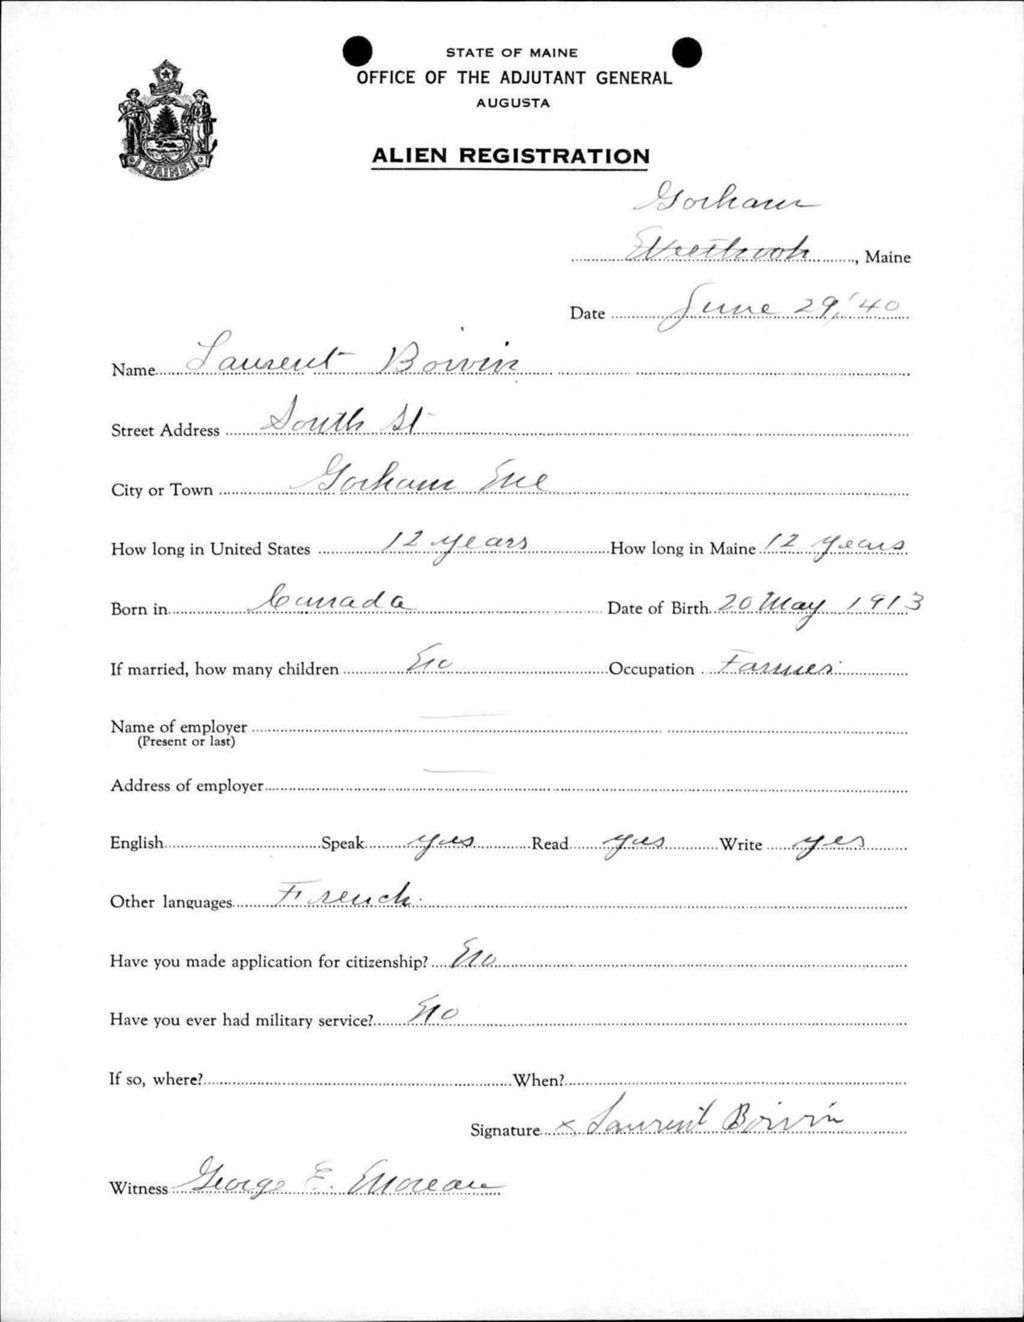 STATE OF MAINE
OFFICE OF THE ADJUTANT GENERAL
AUGUSTA
MAINE
ALIEN REGISTRATION
Gorham
Westbrook, Maine
Date June 29, '40
Name Laurent Boivin
Street Address South St
City or Town Gorham Me
How long in United States 12 years How long in Maine 12 years
Born in Canada Date of Birth 20 May 1913
If married, how many children No Occupation Farmer
Name of employer —
(Present or last)
Address of employer —
English Speak yes Read yes Write yes
Other languages French.
Have you made application for citizenship? No
Have you ever had military service? No
If so, where? When?
Signature x Laurent Boivin
Witness George E. Moreau